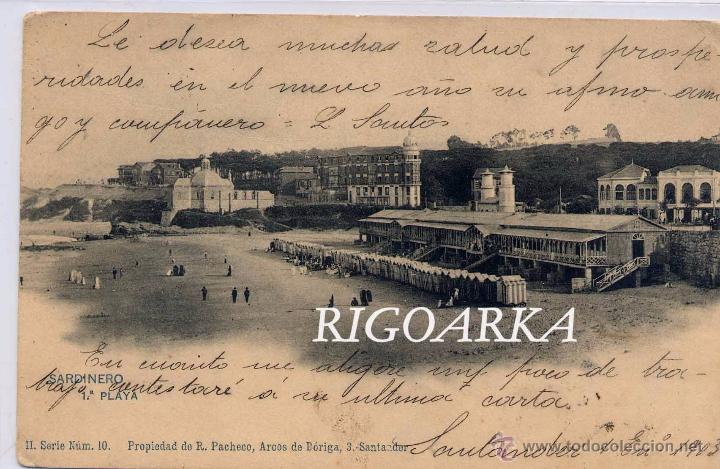 Le desea muchas salud y prospe-
ridades en el nuevo año su afmo ami
go y compañero = L. Santos
RIGOARKA
En cuanto me aligere un poco de tra-
bajo contestaré á su ultima carta
SARDINERO
1.ª PLAYA
II. Serie Núm. 10. Propiedad de R. Pacheco, Arcos de Dóriga, 3.-Santander
Santander 1 En.º 1903
todocoleccion.net